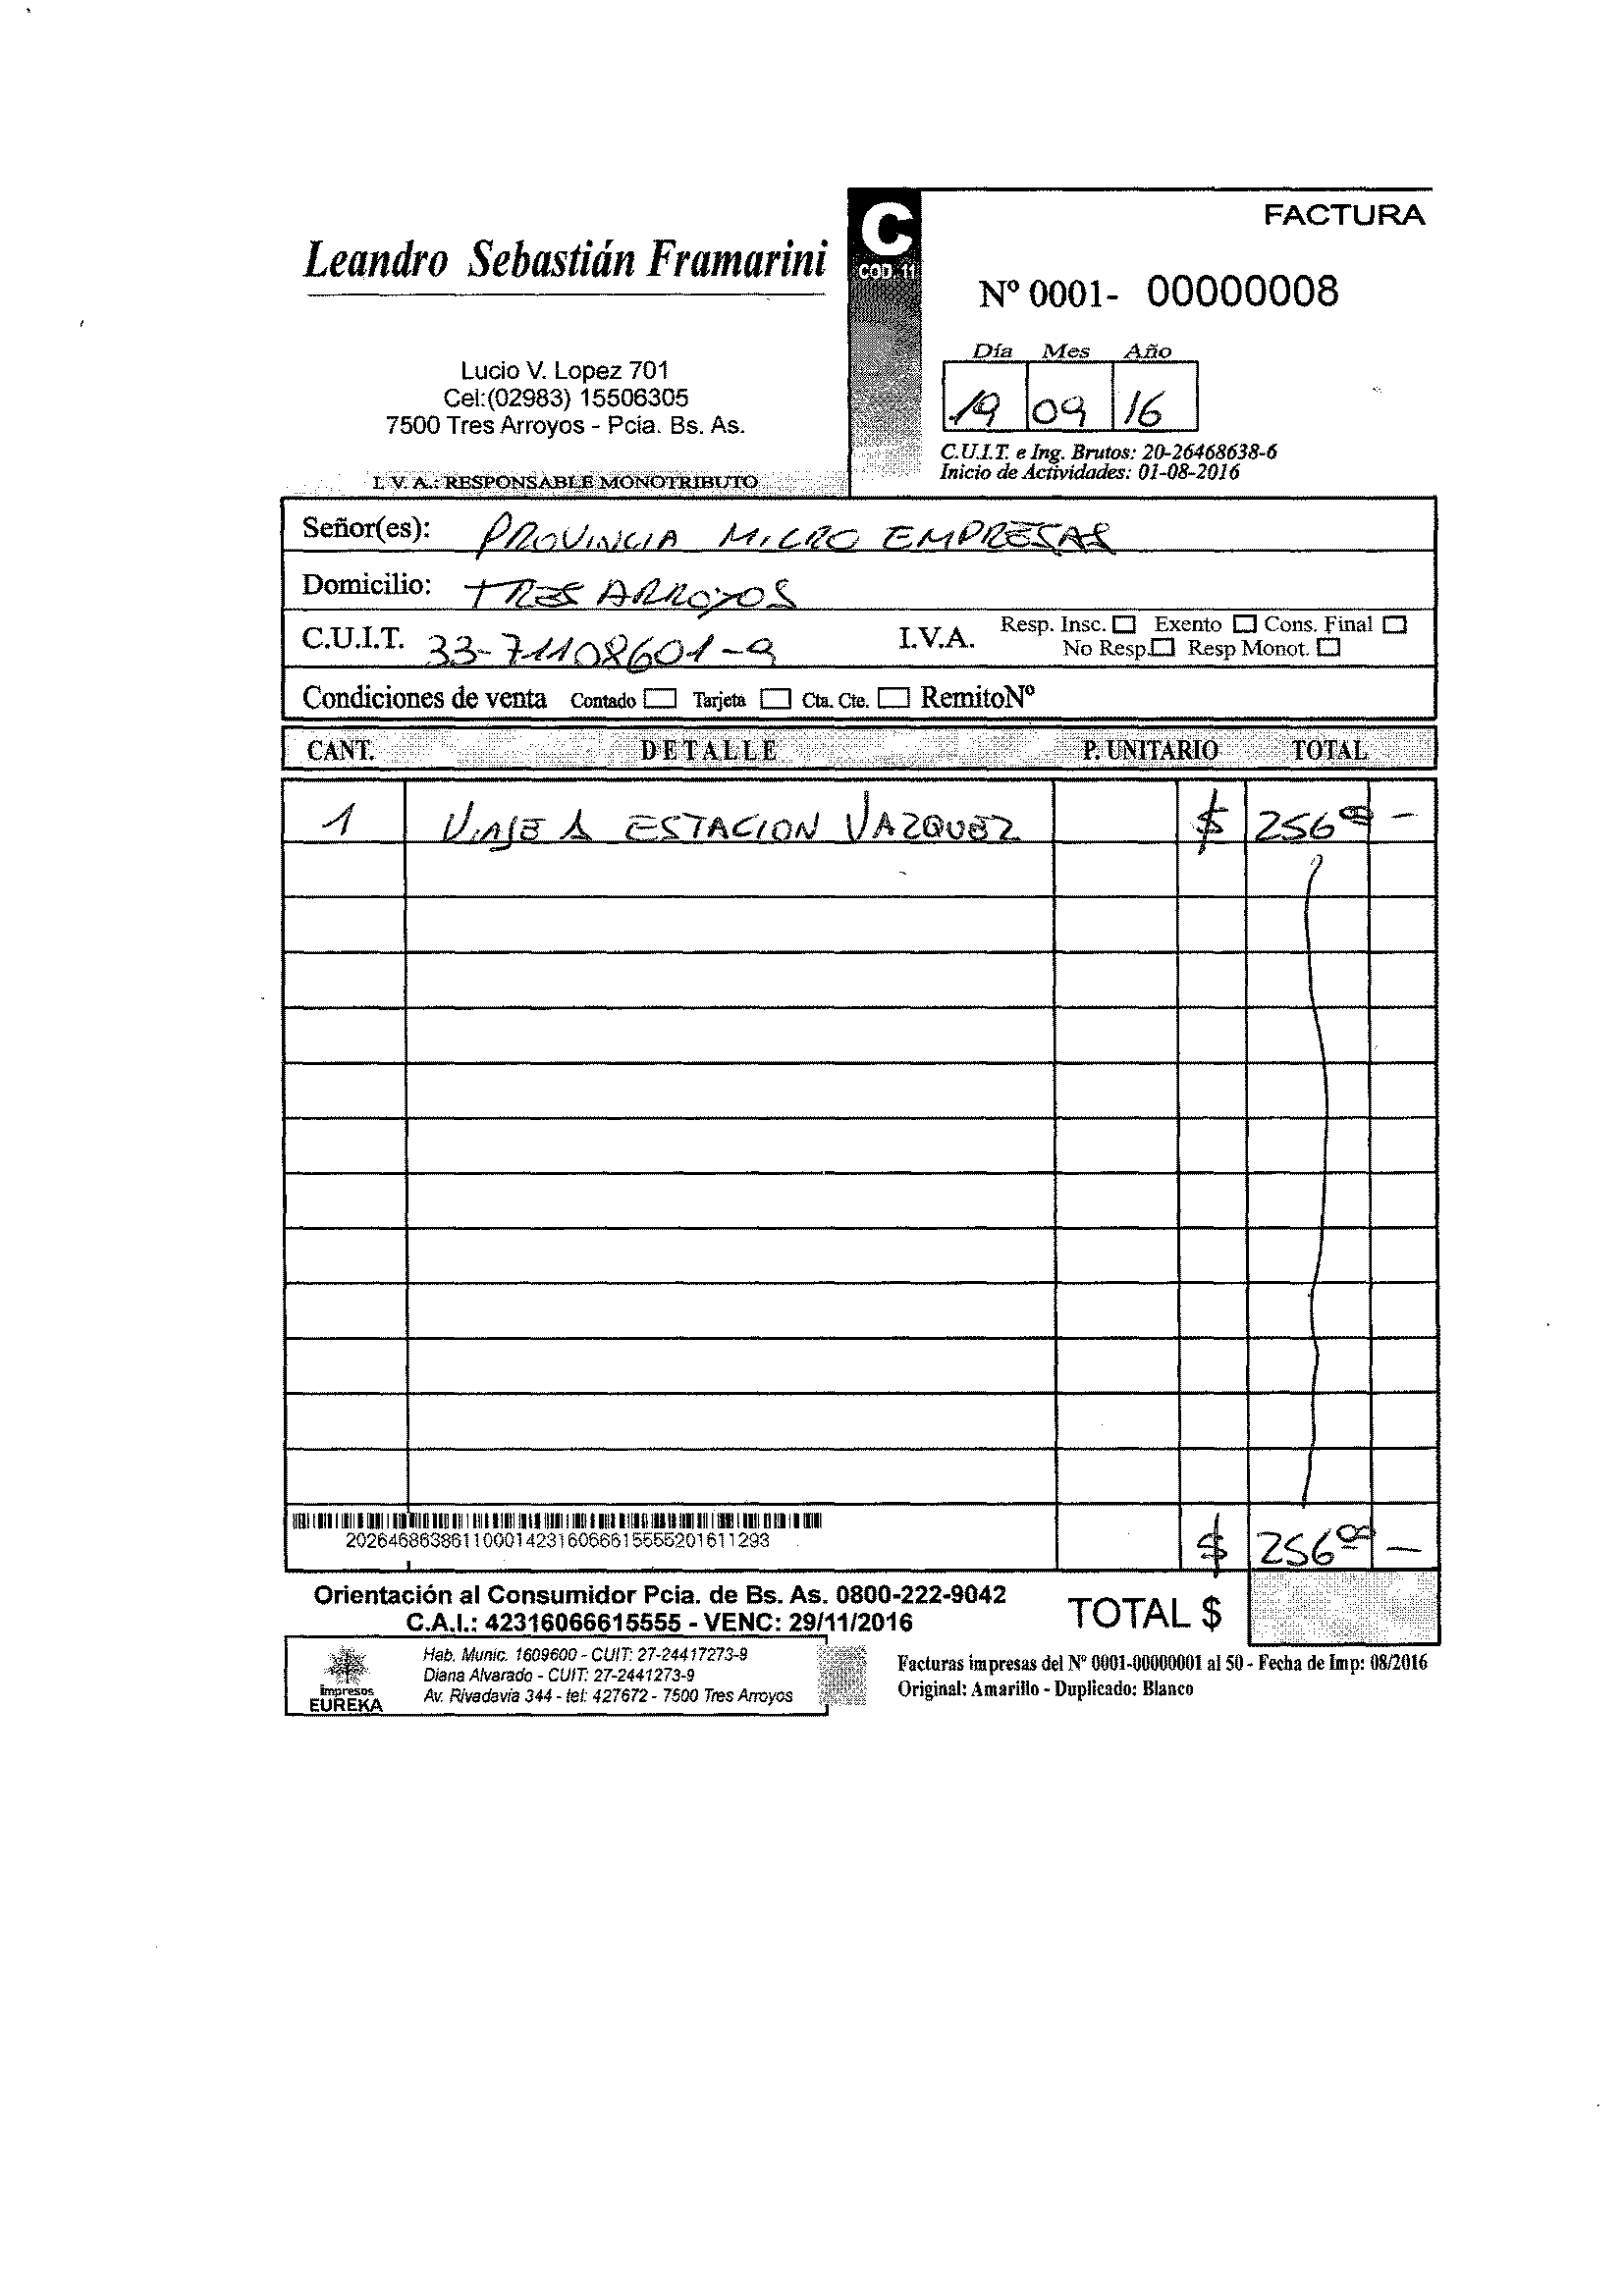 C
COD. 11
FACTURA
Leandro Sebastián Framarini
Nº 0001- 00000008
Día Mes Año
19 09 16
Lucio V. Lopez 701
Cel:(02983) 15506305
7500 Tres Arroyos - Pcia. Bs. As.
C.U.I.T. e Ing. Brutos: 20-26468638-6
Inicio de Actividades: 01-08-2016
I. V. A.: RESPONSABLE MONOTRIBUTO
Señor(es): PROVINCIA MICRO EMPRESAS
Domicilio: TRES ARROYOS
C.U.I.T. 33-71108601-9 I.V.A. Resp. Insc. Exento Cons. Final
No Resp. Resp Monot.
Condiciones de venta Contado Tarjeta Cta. Cte. RemitoNº
CANT. DETALLE P. UNITARIO TOTAL
1 VIAJE A ESTACION VAZQUEZ $ 256 00 -
$ 256 00 -
2026468638611000142316066615555201611293
Orientación al Consumidor Pcia. de Bs. As. 0800-222-9042
C.A.I.: 42316066615555 - VENC: 29/11/2016
TOTAL $
impresos
EUREKA
Hab. Munic. 1609600 - CUIT: 27-24417273-9
Diana Alvarado - CUIT: 27-2441273-9
Av. Rivadavia 344 - tel: 427672 - 7500 Tres Arroyos
Facturas impresas del Nº 0001-00000001 al 50 - Fecha de Imp: 08/2016
Original: Amarillo - Duplicado: Blanco